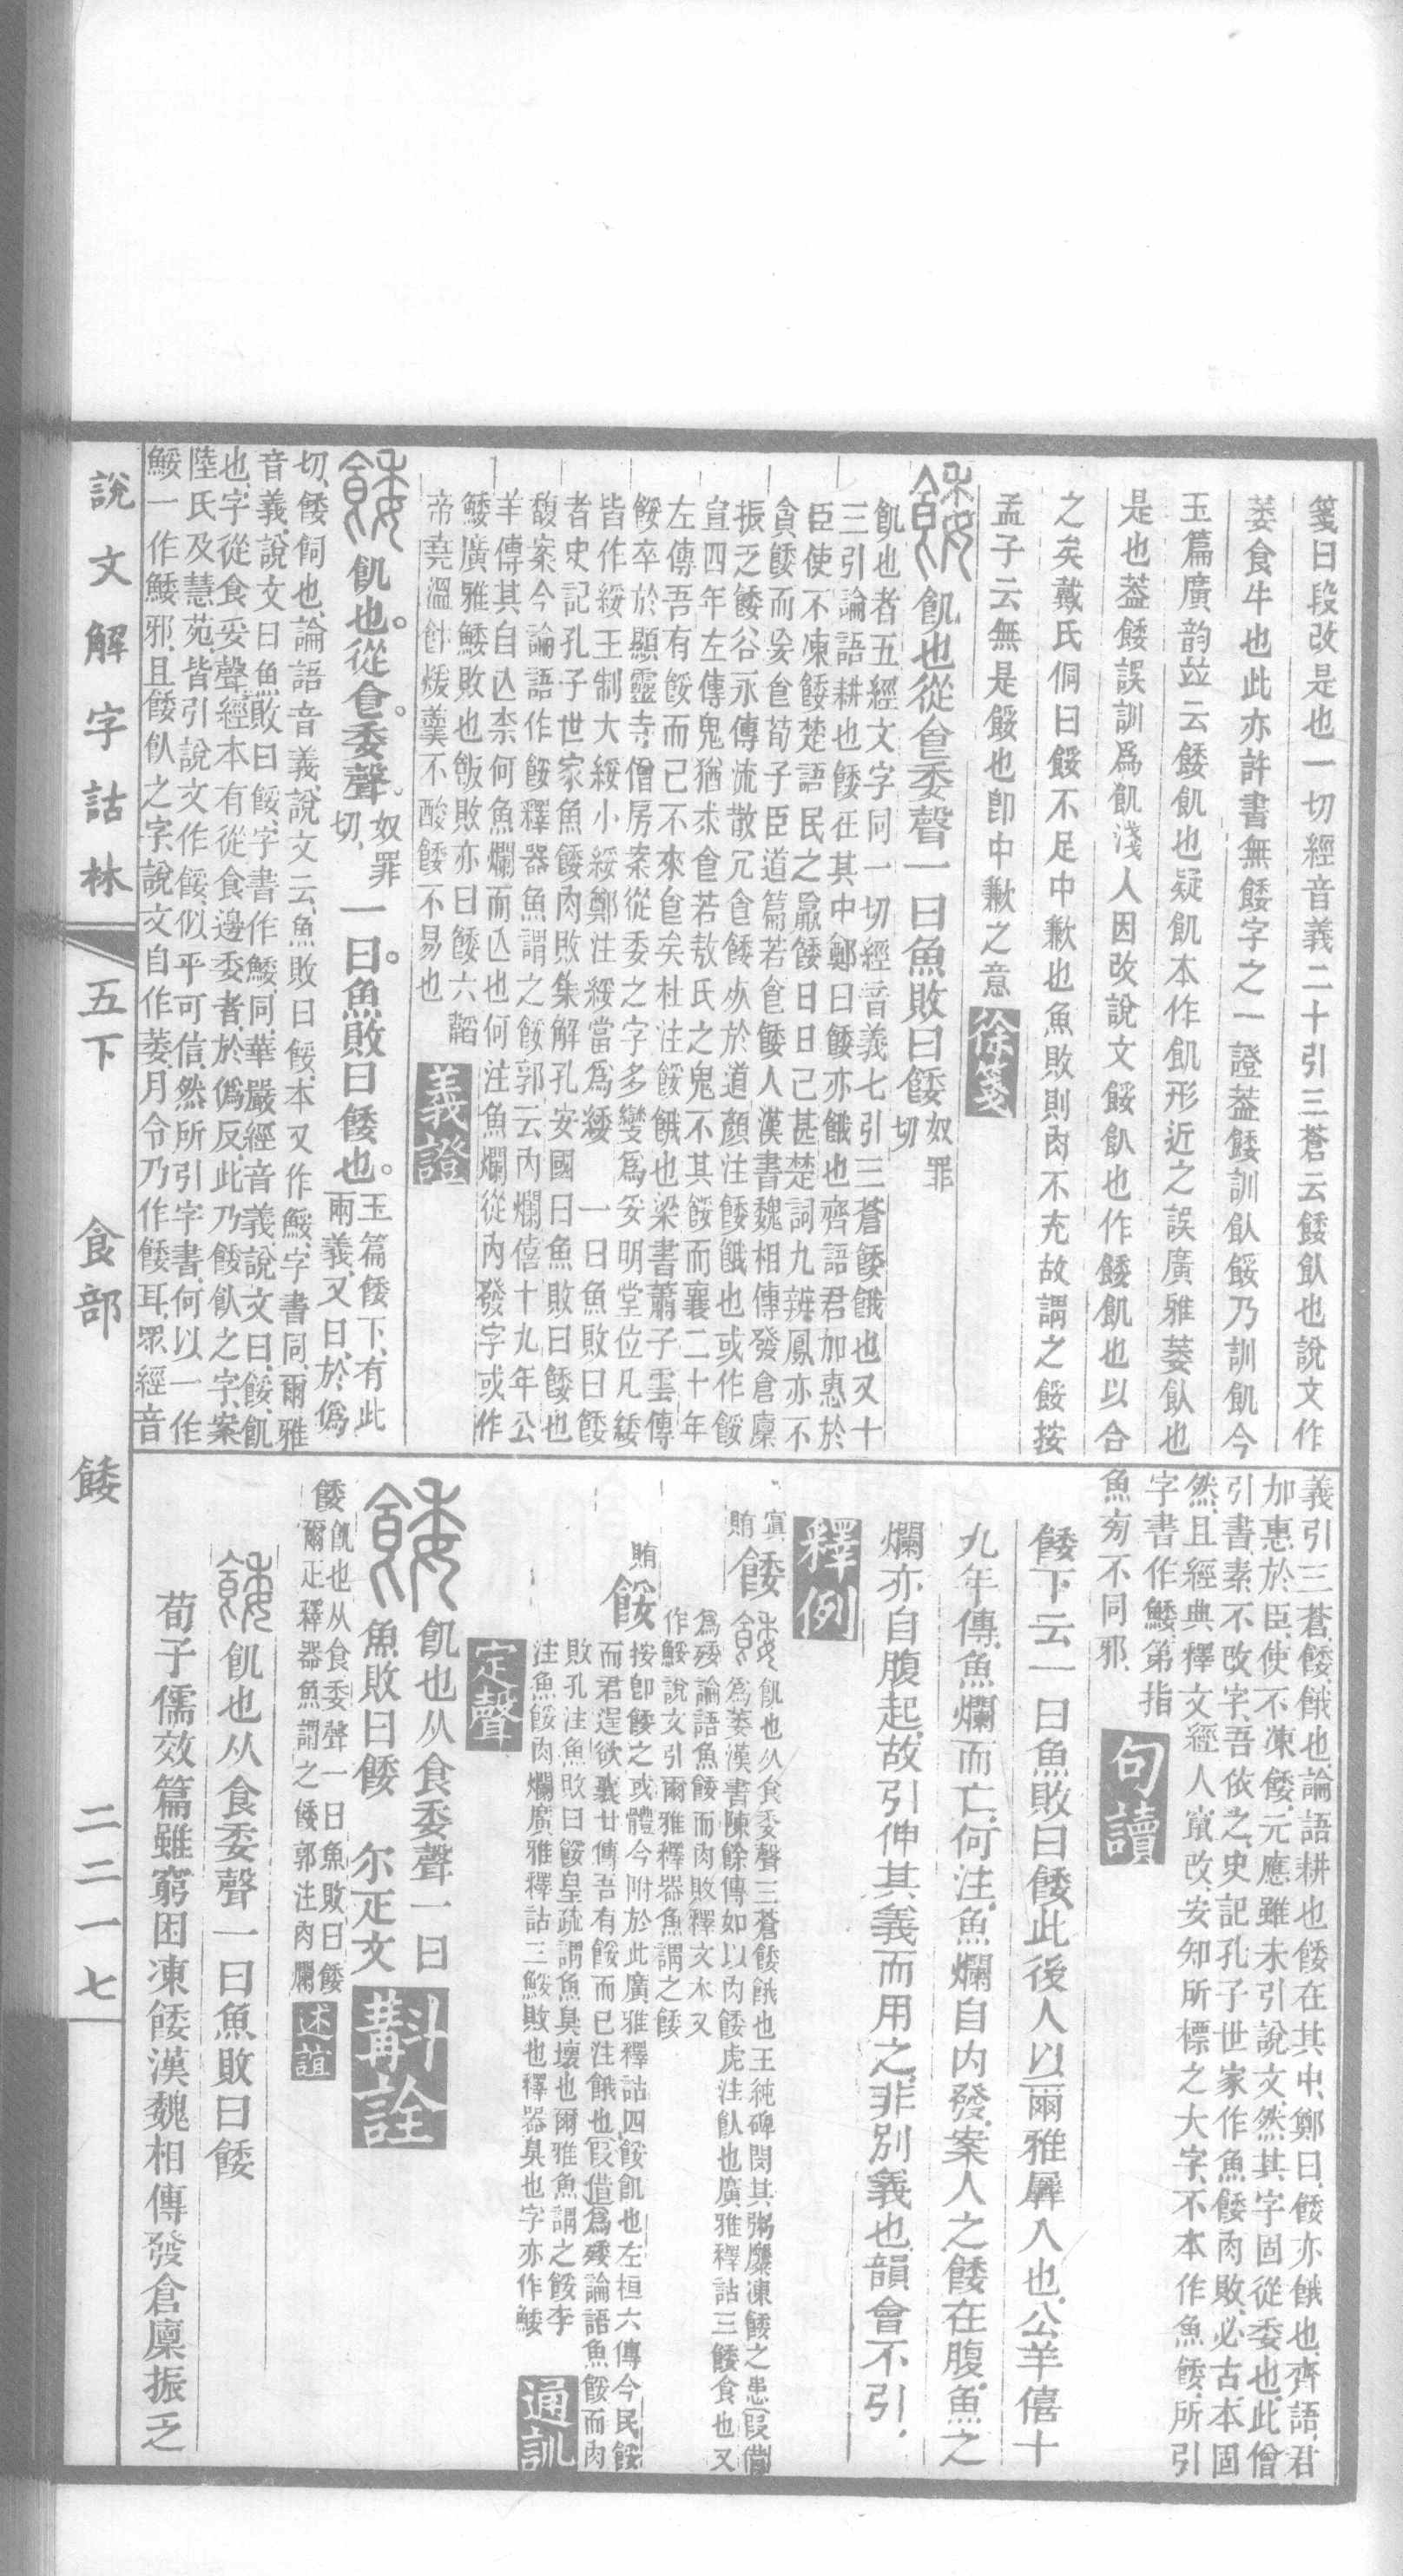 箋曰段改是也一切經音義二十引三蒼云餧飤也說文作
萎食牛也此亦許書無餧字之一證葢餧訓飤餒乃訓飢今
玉篇廣韵竝云餧飢也疑飢本作飤形近之誤廣雅萎飤也
是也葢餧誤訓爲飢淺人因改說文餒飤也作餧飢也以合
之矣戴氏侗曰餒不足中歉也魚敗則肉不充故謂之餒按
孟子云無是餒也卽中歉之意 徐箋
餧 飢也從㑒委聲一曰魚敗曰餧奴罪切
飢也者五經文字同一切經音義七引三蒼餧餓也又十
三引論語耕也餧在其中鄭曰餧亦餓也齊語君加惠於
臣使不凍餧楚語民之羸餧日日已甚楚詞九辨鳳亦不
貪餧而妄食荀子臣道篇若食餧人漢書魏相傳發倉廩
振乏餧谷永傳流散冗食餧𣦸於道顏注餧餓也或作餒
宣四年左傳鬼猶求食若敖氏之鬼不其餒而襄二十年
左傳吾有餒而已不來食矣杜注餒餓也梁書蕭子雲傳
餒卒於顯靈寺僧房案從委之字多變爲妥明堂位凡緌
皆作綏王制大綏小綏鄭注綏當爲緌 一曰魚敗曰餧
者史記孔子世家魚餧肉敗集解孔安國曰魚敗曰餧也
馥案今論語作餒釋器魚謂之餒郭云內爛僖十九年公
羊傳其自亾柰何魚爛而亾也何注魚爛從內發字或作
鯘廣雅鯘敗也飯敗亦曰餧六韜
帝堯溫飰煖羹不酸餧不易也 義證
餧 飢也。從㑒。委聲。奴罪切。一曰。魚敗曰餧也。玉篇餧下、有此兩義、又曰、於僞
切、餧飼也、論語音義、說文云、魚敗曰餒、本又作鮾、字書同、爾雅
音義、說文曰魚敗曰餒、字書作鯘、同、華嚴經音義、說文曰、餒、飢
也、字從食妥聲、經本有從食邊委者、於僞反、此乃餧飤之字、案
陸氏及慧苑、皆引說文作餒、似乎可信、然所引字書、何以一作
鮾一作鯘邪、且餧飤之字、說文自作萎、月令乃作餧耳、眾經音
義引三蒼、餧、餓也、論語耕也餧在其中、鄭曰、餧亦餓也、齊語、君
加惠於臣、使不凍餧、元應雖未引說文、然其字固從委也、此僧
引書、素不改字、吾依之、史記孔子世家作魚餧肉敗、必古本固
然、且經典釋文經人竄改、安知所標之大字、不本作魚餧、所引
字書作鯘、第指
魚㫄不同邪、 句讀
餧下云一曰魚敗曰餧、此後人以爾雅羼入也、公羊僖十
九年傳、魚爛而亡、何注、魚爛自內發、案人之餧在腹、魚之
爛亦自腹起、故引伸其義而用之、非別義也、韻會不引、
釋例
餧 飢也从食委聲三蒼餧餓也王純碑閔其粥糜凍餧之患叚借
爲萎漢書陳餘傳如以肉餧虎注飤也廣雅釋詁三餧食也又
爲矮論語魚餧而肉敗釋文本又
作鮾說文引爾雅釋器魚謂之餧
餒 按卽餧之或體今附於此廣雅釋詁四餒飢也左桓六傳今民餒
而君逞欲襄廿傳吾有餒而已注餓也叚借爲矮論語魚餒而肉
敗孔注魚敗曰餒皇疏謂魚臭壞也爾雅魚謂之餒李
注魚餒肉爛廣雅釋詁三鮾敗也釋器臭也字亦作鯘 通訓
定聲
餧 飢也从食委聲一曰
魚敗曰餧 尔疋文 斠詮
餧 飢也从食委聲一曰魚敗曰餧
爾疋釋器魚謂之餧郭注肉爛 述誼
餧 飢也从食委聲一曰魚敗曰餧
荀子儒效篇雖窮困凍餧漢魏相傳發倉廩振乏
說文解字詁林 五下 食部 餧 二二一七